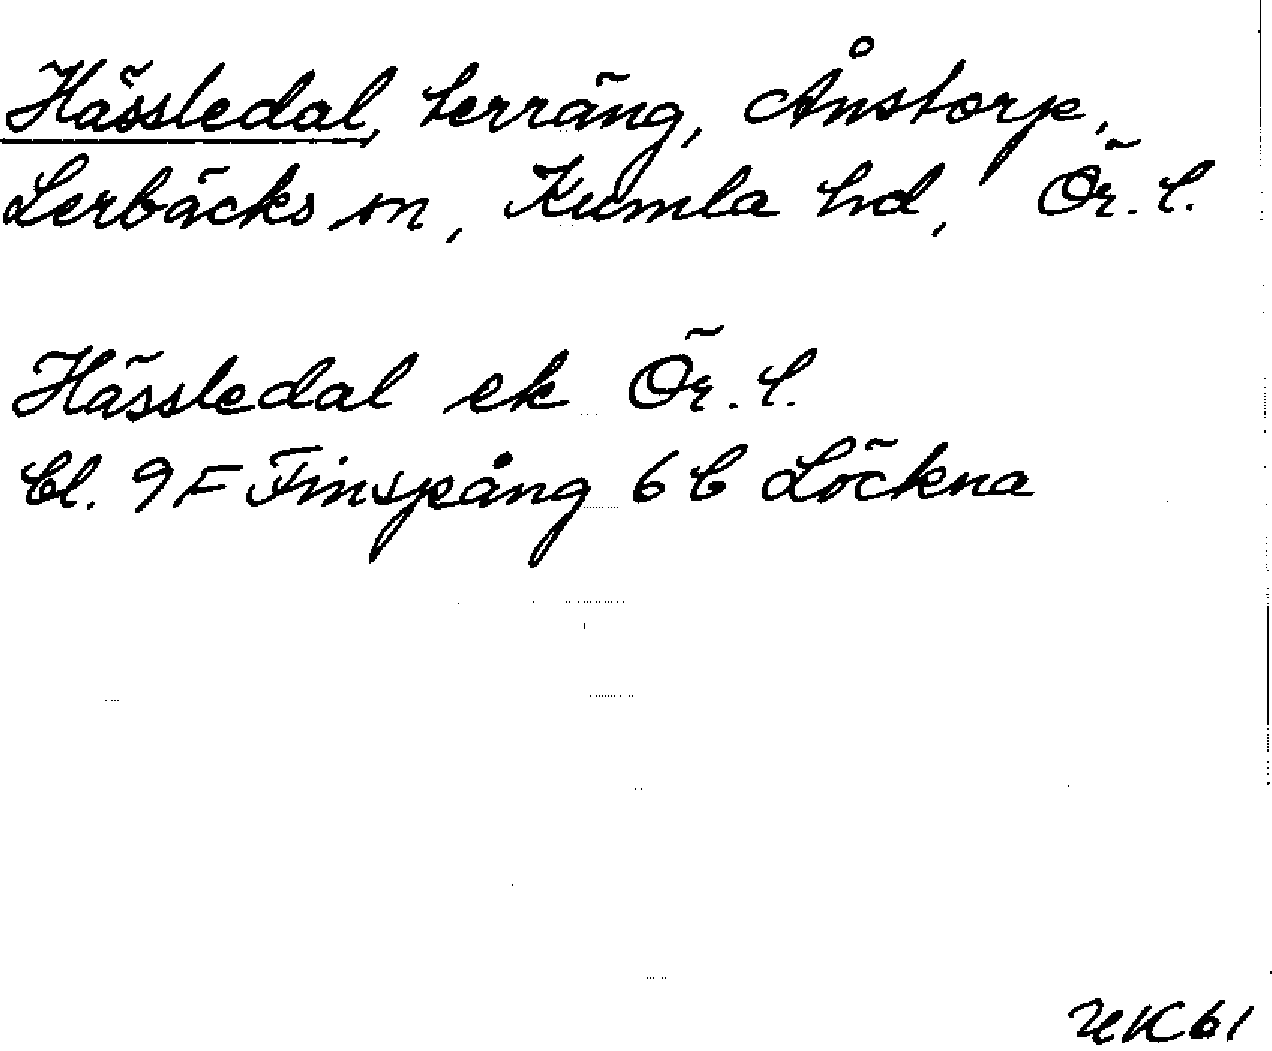 Hässledal, terräng, Ånstorp,
Lerbäcks sn, Kumla hd, Ör. l.
Hässledal ek Ör. l.
Bl. 9F Finspång 6 b Löckna
HK61